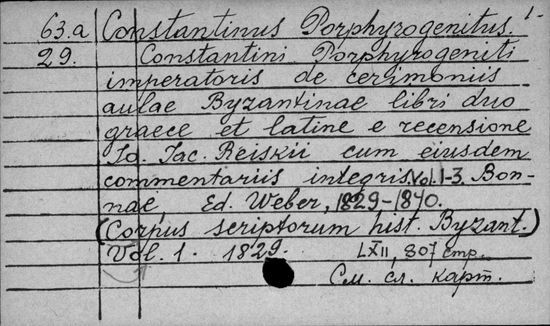 63.a Constantinus Porphyrogenitus. 1-
29. Constantini Porphyrogeniti
imperatoris de cerimoniis
aulae Byzantinae libri duo
graece et latine e recensione
Io. Iac. Reiskii cum eiusdem
commentariis integris. Vol. 1-3. Bon-
nae, Ed. Weber, 1829-1840.
(Corpus scriptorum hist. Byzant.)
Vol. 1. 1829. LXII, 807 стр.
См. сл. карт.